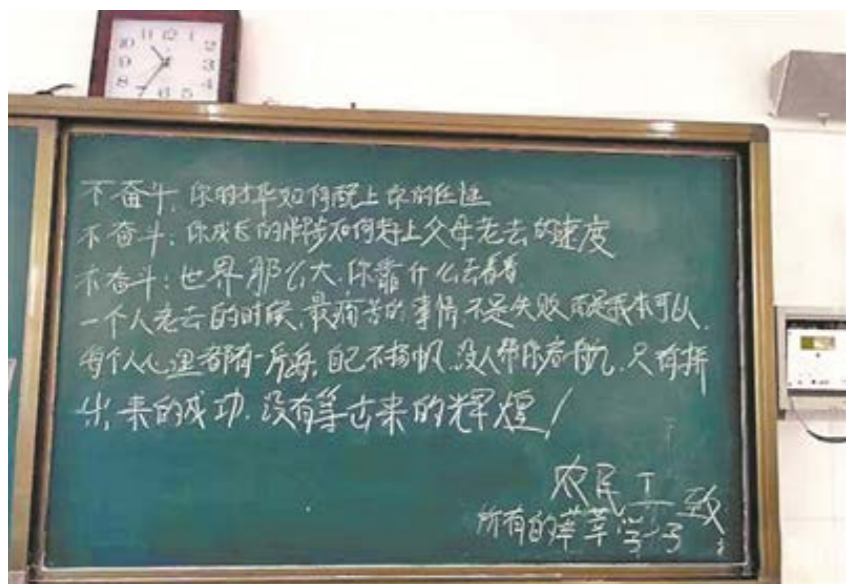 11 12 1
10 2
9 3
8 4
7 6 5
不奋斗，你的才华如何配上你的任性
不奋斗：你成长的脚步如何赶上父母老去的速度
不奋斗：世界那么大，你靠什么去看看
一个人老去的时候，最痛苦的事情，不是失败，而是我本可以，
每个人心里都有一片海，自己不扬帆，没人帮你启航，只有拼
出来的成功，没有等出来的辉煌！
农民工致
所有的莘莘学子